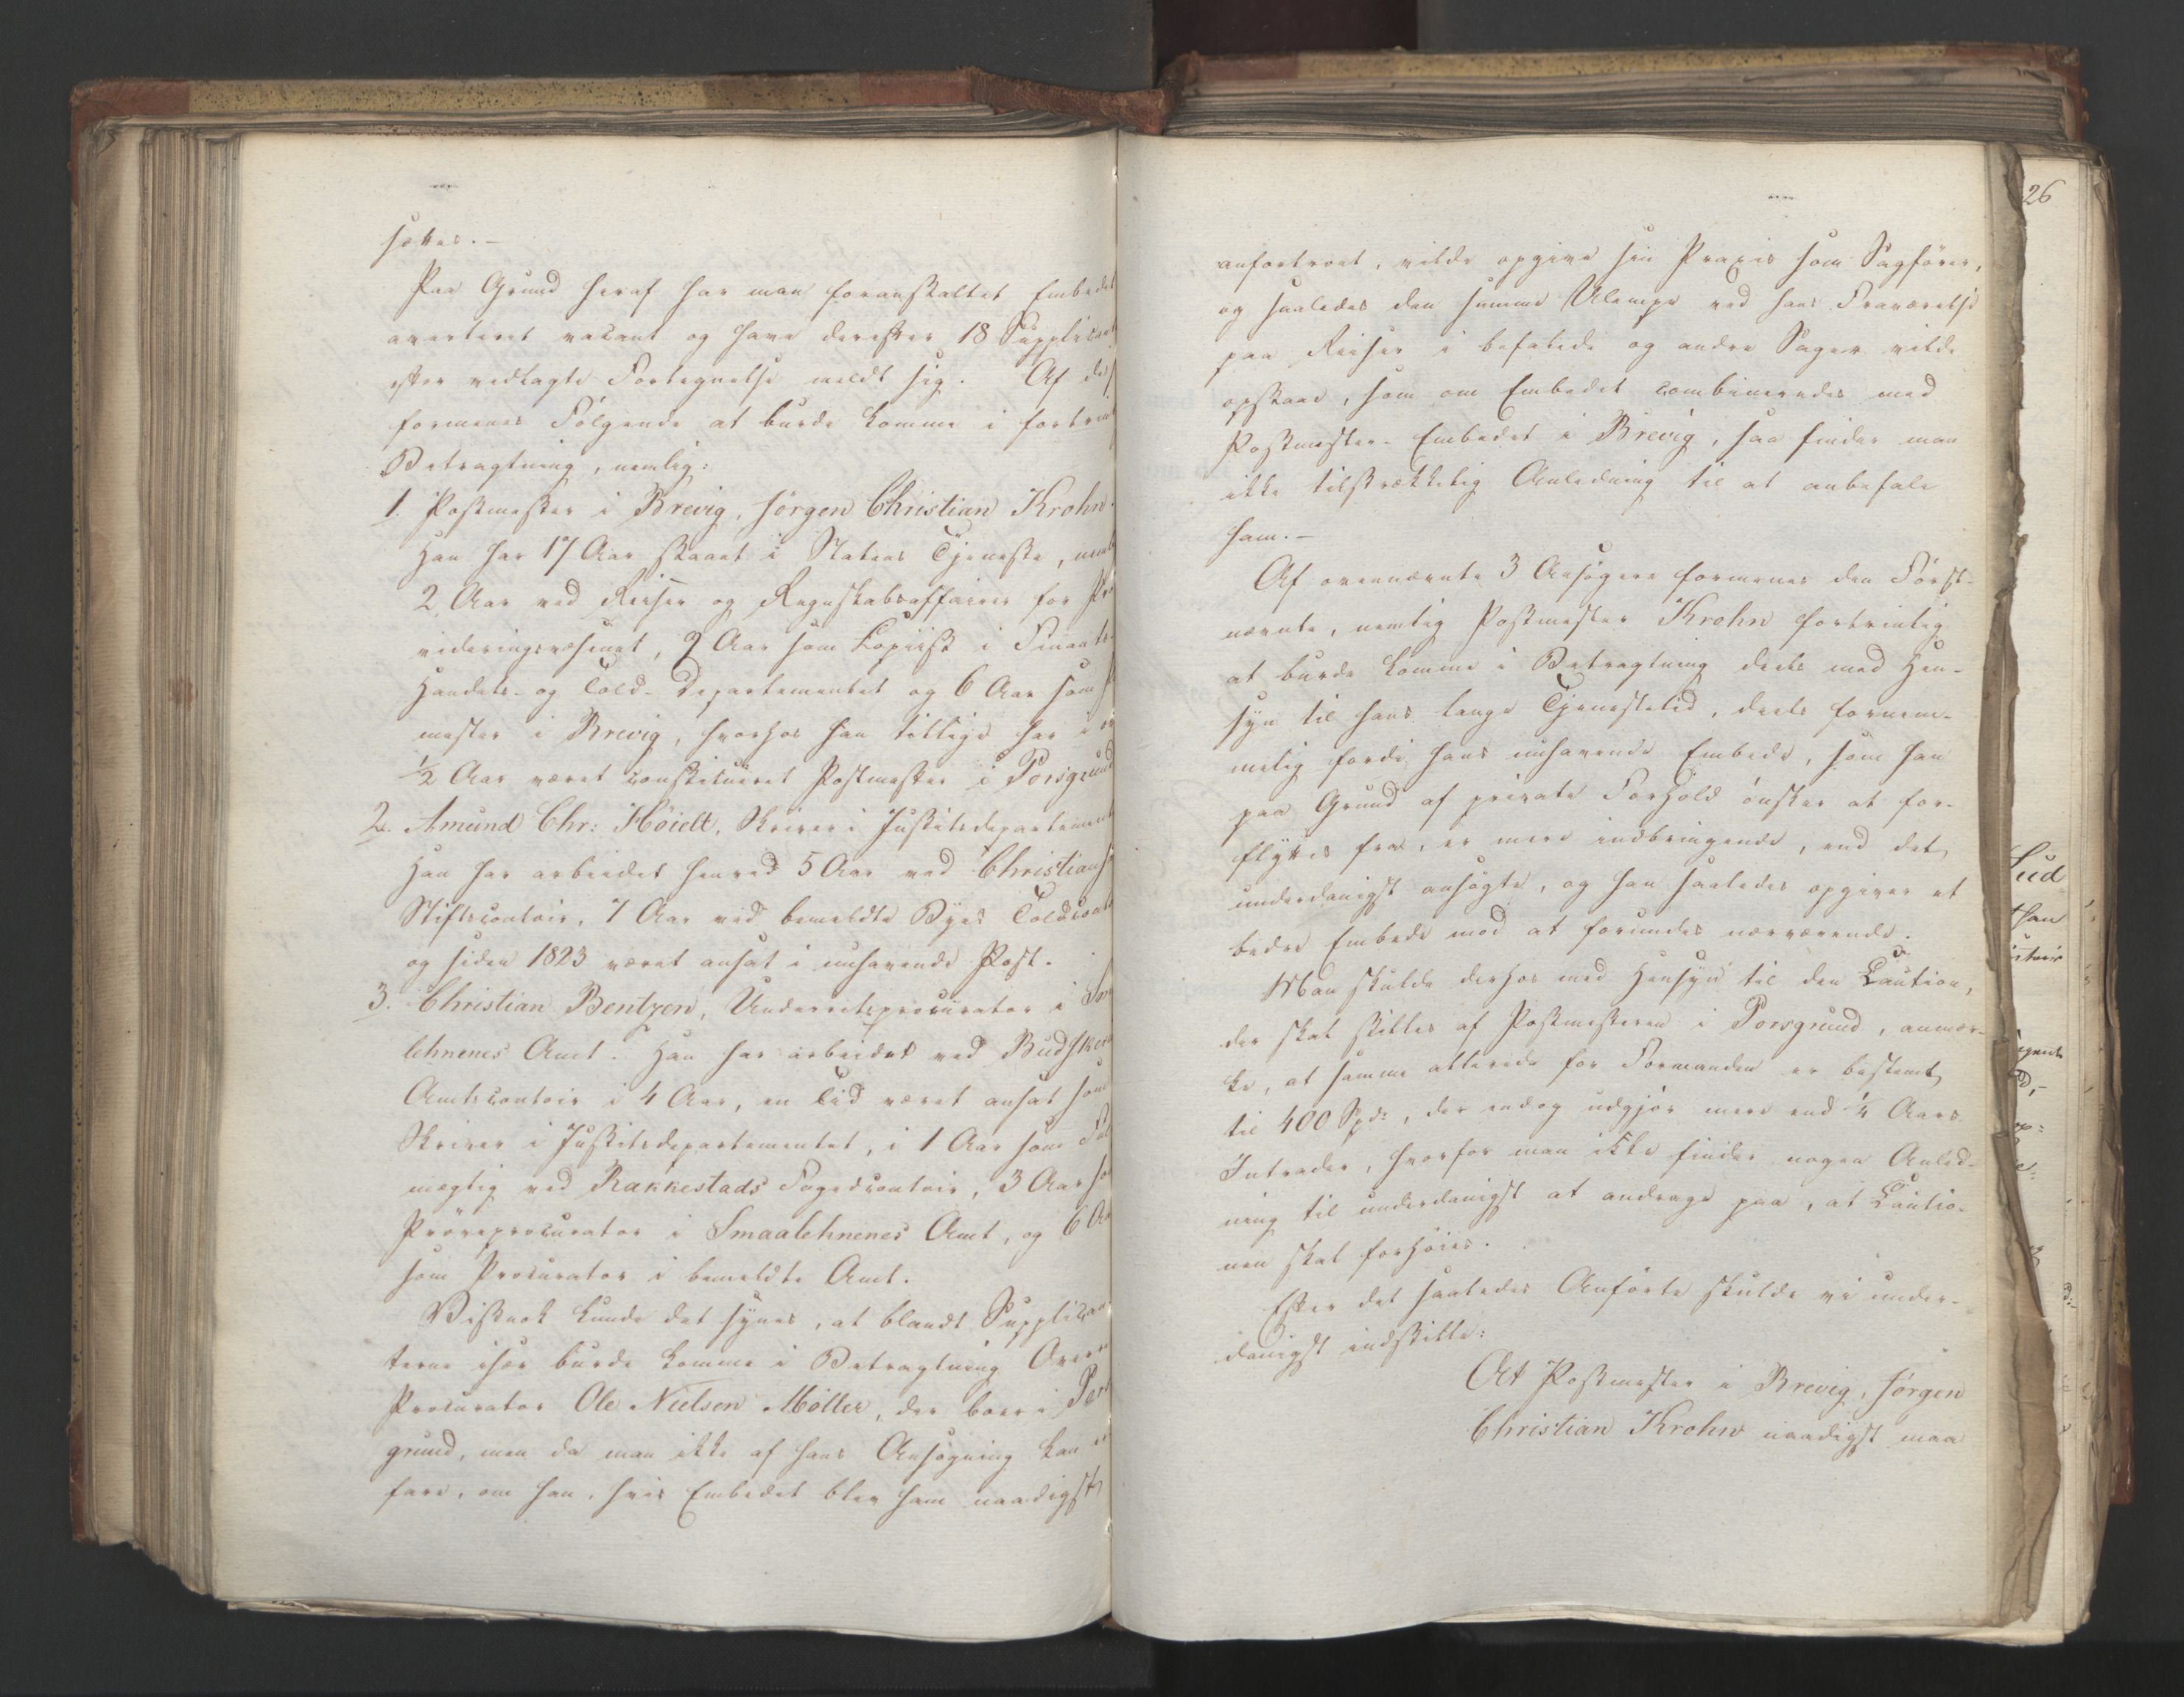 sættes.-
Paa Grund heraf har man foranstaltet Embedet
averteret vacant og have derefter 18 Supplicant
efter vedlagte Fortegnelse meldt sig. Af dis
formenes Følgende at burde komme i fortrin
Betragtning, nemlig:
1. Postmester i Brevig, Jørgen Christian Krohn.
Han har 17 Aar staaet i Statens Tjeneste, neml
2 Aar ved Reiser og Regnskabsaffairer for Pro
videringsvæsenet, 9 Aar som Copiist i Finants-
Handels- og Told-Departementet og 6 Aar som
mester i Brevig, hvorhos han tillige har i
1/2 Aar været constitueret Postmester i Porsgrund
2. Amund Chr: Höielt, Skriver i Justitsdepartement
Han har arbeidet henved 5 Aar ved Christians
Stiftscontoir, 7 Aar ved bemeldte Byes Toldcont
og siden 1823 været ansat i innhavende Post.
3. Christian Bentzen, Underretsprocurator i Sm
lehnenes Amt. Han har arbeidet ved Budsker
Amtscontoir i 4 Aar, en Tid været ansat som
Skriver i Justitsdepartementet, i 1 Aar som Ful
mægtig ved Rakkestads Fogedcontoir, 3 Aar so
Prøveprocurator i Smaalehnenes Amt, og 6 Aa
som Procurator i bemeldte Amt.
Vistnok kunde det synes, at blandt Supplican
terne især burde komme i Betragtning Overr
Procurator Ole Nielsen Møller, der boer i Pors
grund, men da man ikke af hans Ansøgning kan er
fare, om han, hvis Embedet blev ham naadigst
26
anfortroet, vilde opgive sin Praxis som Sagfører,
og saaledes den samme Ulempe ved hans Fraværelse
paa Reiser i befalede og andre Sager vilde
opstaae, som om Embedet combineredes med
Postmester-Embedet i Brevig, saa finder man
ikke tilstrækkelig Anledning til at anbefale
ham.-
Af ovennævnte 3 Ansøgere formenes den Først-
nævnte, nemlig Postmester Krohn fortrinlig
at burde komme i Betragtning deels med Hen-
syn til hans lange Tjenestetid, deels fornem-
melig fordi hans innhavende Embede, som han
paa Grund af private Forhold ønsker at for-
flyttes fra, er mere indbringende, end det
underdanigst ansøgte, og han saaledes opgiver et
bedre Embede mod at forundes nærværende.
Man skulde derhos med Hensyn til den Caution,
der skal stilles af Postmesteren i Porsgrund, anmær-
ke, at samme allerede for Formanden er bestemt
til 400 Spd:, der endog udgjør mere end 1/4 Aars
Intrader, hvorfor man ikke finder nogen Anled-
ning til underdanigst at andrage paa, at Cautio-
nen skal forhøies.
Efter det saaledes Anførte skulde vi under-
danigst indstille:
At Postmester i Brevig, Jørgen
Christian Krohn naadigst maa